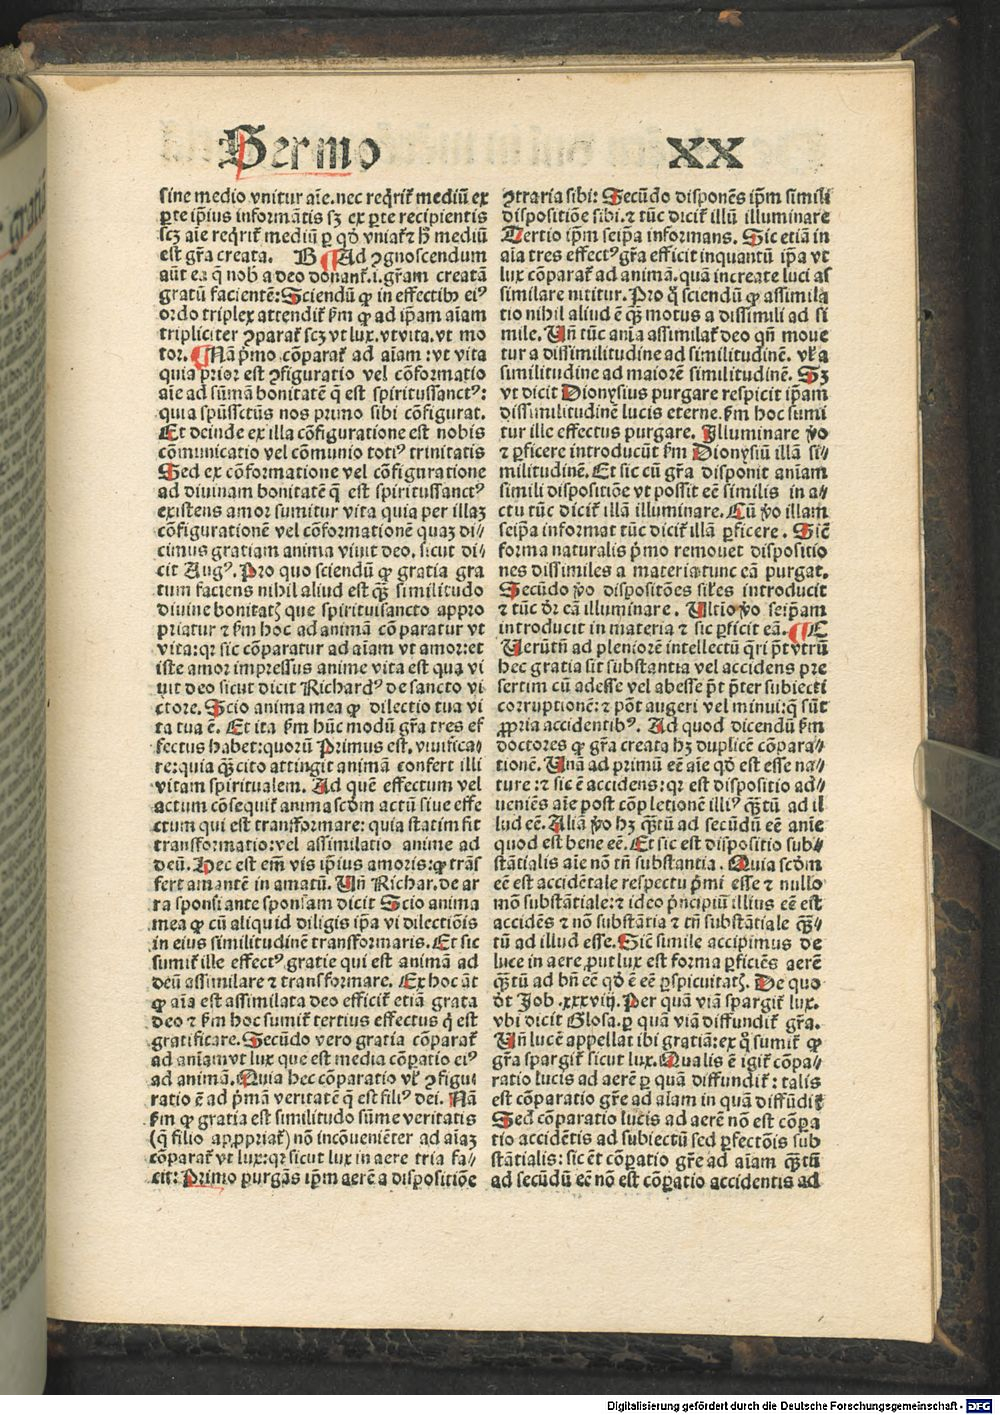 Sermo XX
sine medio vnitur aīe.nec reqͥrit᷑ mediū ex
ꝑte ip̄ius informātis sꝫ ex ꝑte recipientis
scꝫ aīe reqͥrit᷑ mediū ꝑ qd̓ vniat᷑ ⁊ h̓ mediū
est gr̄a creata. B ¶ Ad ꝯgnoscendum
aūt ea q̄ nob̓ a deo donant᷑.i.gr̄am creatā
gratū facientē: Sciendū ꝙ in effectibꝫ eiꝰ
ordo triplex attendit᷑ ẜm ꝙ ad ip̄am aīam
tripliciter ꝯparat᷑ scꝫ vt lux.vt vita.vt mo
tor. ¶ Nā pͥmo cōparat᷑ ad aīam : vt vita
quia prior est ꝯfiguratio vel cōformatio
aīe ad sūmā bonitatē q̄ est spiritussanctꝰ:
quia spūssctūs nos primo sibi cōfigurat.
Et deinde ex illa cōfiguratione est nobis
cōmunicatio vel cōmuio totiꝰ trinitatis
Sed ex cōformatione vel cōfiguratione
ad diuinam bonitatē q̄ est spiritussanctꝰ
existens amor sumitur vita quia per illaꝫ
cōfigurationē vel cōformationē quaꝫ di⸗
cimus gratiam anima viuit deo. sicut di⸗
cit Augꝰ. Pro quo sciendū ꝙ gratia gra
tum faciens nihil aliud est qꝫ̄ similitudo
diuine bonitatꝭ que spirituisancto appro
priatur ⁊ ẜm hoc ad animā cōparatur vt
vita:qꝛ sic cōparatur ad aīam vt amor:et
iste amor impressus anime vita est qua vi
uit deo sicut dicit Richardꝰ de sancto vi
ctore. Scio anima mea ꝙ dilectio tua vi
ta tua ē. Et ita ẜm hūc modū gr̄a tres ef
fectus habet:quorū Primus est, viuifica⸗
re:quia qꝫ̄cito attingit animā confert illi
vitam spiritualem. Ad quē effectum vel
actum cōsequit᷑ anima scd̓m actū siue effe
ctum qui est transformare: quia statim fit
transformatio:vel assimilatio anime ad
deū. Hec est em̄ vis ip̄ius amoris:ꝙ trāſ
fert amantē in amatū. Un̄ Richar. de ar
ra sponsi ante sponsam dicit Scio anima
mea ꝙ cū aliquid diligis ip̄a vi dilectiōis
in eius similitudinē transformaris. Et sic
sumit᷑ ille effectꝰ gratie qui est animā ad
deū assimilare ⁊ transformare. Ex hoc āt
ꝙ aīa est assimilata deo efficit᷑ etiā grata
deo ⁊ ẜm hoc sumit᷑ tertius effectus qͥ est
gratificare. Secūdo vero gratia cōparat᷑
ad anīam vt lux que est media cōꝑatio eiꝰ
ad animā. Quia hec cōparatio vl̓r ꝯfigu
ratio ē ad pͥmā veritatē q̄ est filiꝰ dei. Nā
ẜm ꝙ gratia est similitudo sūme veritatis
(q̄ filio aꝓpriat᷑) nō incōueniēter ad aīaꝫ
cōparat᷑ vt lux:qꝛ sicut lux in aere tria fa⸗
cit: Primo purgās ip̄m aerē a dispositiōe
ꝯtraria sibi: Secūdo disponēs ip̄m simili
dispositiōe sibi.⁊ tūc dicit᷑ illū illuminare
Tertio ip̄m seip̄a informans. Sic etiā in
aīa tres effectꝰ gr̄a efficit inquantū ip̄a vt
lux cōparat᷑ ad animā. quā increate luci as
similare nititur. Pro qͦ sciendū ꝙ assimila
tio nihil aliud ē qꝫ̄ motus a dissimili ad si
mile. Un̄ tūc anīa assimilat᷑ deo qn̄ moue
tur a dissimilitudine ad similitudinē. vl̓ a
similitudine ad maiorē similitudinē. Sꝫ
vt dicit Dionysius purgare respicit ip̄am
dissimilitudinē lucis eterne. ẜm hoc sumi
tur ille effectus purgare. Illuminare v̓o
⁊ ꝑficere introducūt ẜm Dionysiū illā si⸗
militudinē. Et sic cū gr̄a disponit anīam
simili dispositiōe vt possit eē similis in a⸗
ctu tūc dicit᷑ illā illuminare. Cū v̓o illam
seip̄a informat tūc dicit᷑ illā ꝑficere. Sic̄
forma naturalis pͥmo remouet dispositio
nes dissimiles a materia:tunc eā purgat.
Secūdo v̓o dispositōes sil̓es introducit
⁊ tūc dr̄ eā illuminare. Ultio v̓o seip̄am
introducit in materia ⁊ sic ꝑficit eā. ¶ E
Uerūtn̄ ad pleniorē intellectū q̄ri pōt vtrū
hec gratia sit substantia vel accidens pre
sertim cū adesse vel abesse pōt p̄ter subiecti
corruptionē: ⁊ pōt augeri vel minui:q̄ sūt
ꝓpria accidentibꝰ. Ad quod dicendū ẜm
doctores ꝙ gr̄a creata hꝫ duplicē cōpara⸗
tionē. Unā ad primū eē aīe qd̓ est esse na⸗
ture :⁊ sic ē accidens: qꝛ est dispositio ad⸗
ueniēs aīe post cōpletionē illiꝰ qꝫ̄tū ad il
lud eē. Aliā v̓o hꝫ qꝫ̄tū ad secūdū eē anīe
quod est bene eē. Et sic est dispositio sub⸗
stātialis aīe nō tn̄ substantia. Quia scd̓m
eē est accidētale respectu pͥmi esse ⁊ nullo
mō substātiale: ⁊ ideo pͥncipiū illius eē est
accidēs ⁊ nō substātia ⁊ tn̄ substātiale qꝫ̄⸗
tū ad illud esse. Sic̄ simile accipimus de
luce in aere ꝓut lux est forma ꝑficiēs aerē
qꝫ̄tū ad bn̄ eē qd̓ ē eē ꝑspicuitatꝭ. De quo
dr̄ Job .xxxviij. Per quā viā spargit᷑ lux.
vbi dicit Glosa. ꝑ quā viā diffundit᷑ gr̄a.
Un̄ lucē appellat ibi gratiā: ex qͦ sumit᷑ ꝙ
gr̄a spargit᷑ sicut lux. Qualis ē igit᷑ cōpa⸗
ratio lucis ad aerē ꝑ quā diffundit᷑ : talis
est cōparatio gr̄e ad aīam in quā diffūdit᷑
Sed cōparatio lucis ad aerē nō est cōpa
tio accidētis ad subiectū sed ꝑfectōis sub
stātialis: sic ēt cōꝑatio gr̄e ad aīam qꝫ̄tū
ad secūdū eē nō est cōꝑatio accidentis ad
Digitalisierung gefördert durch die Deutsche Forschungsgemeinschaft - DFG